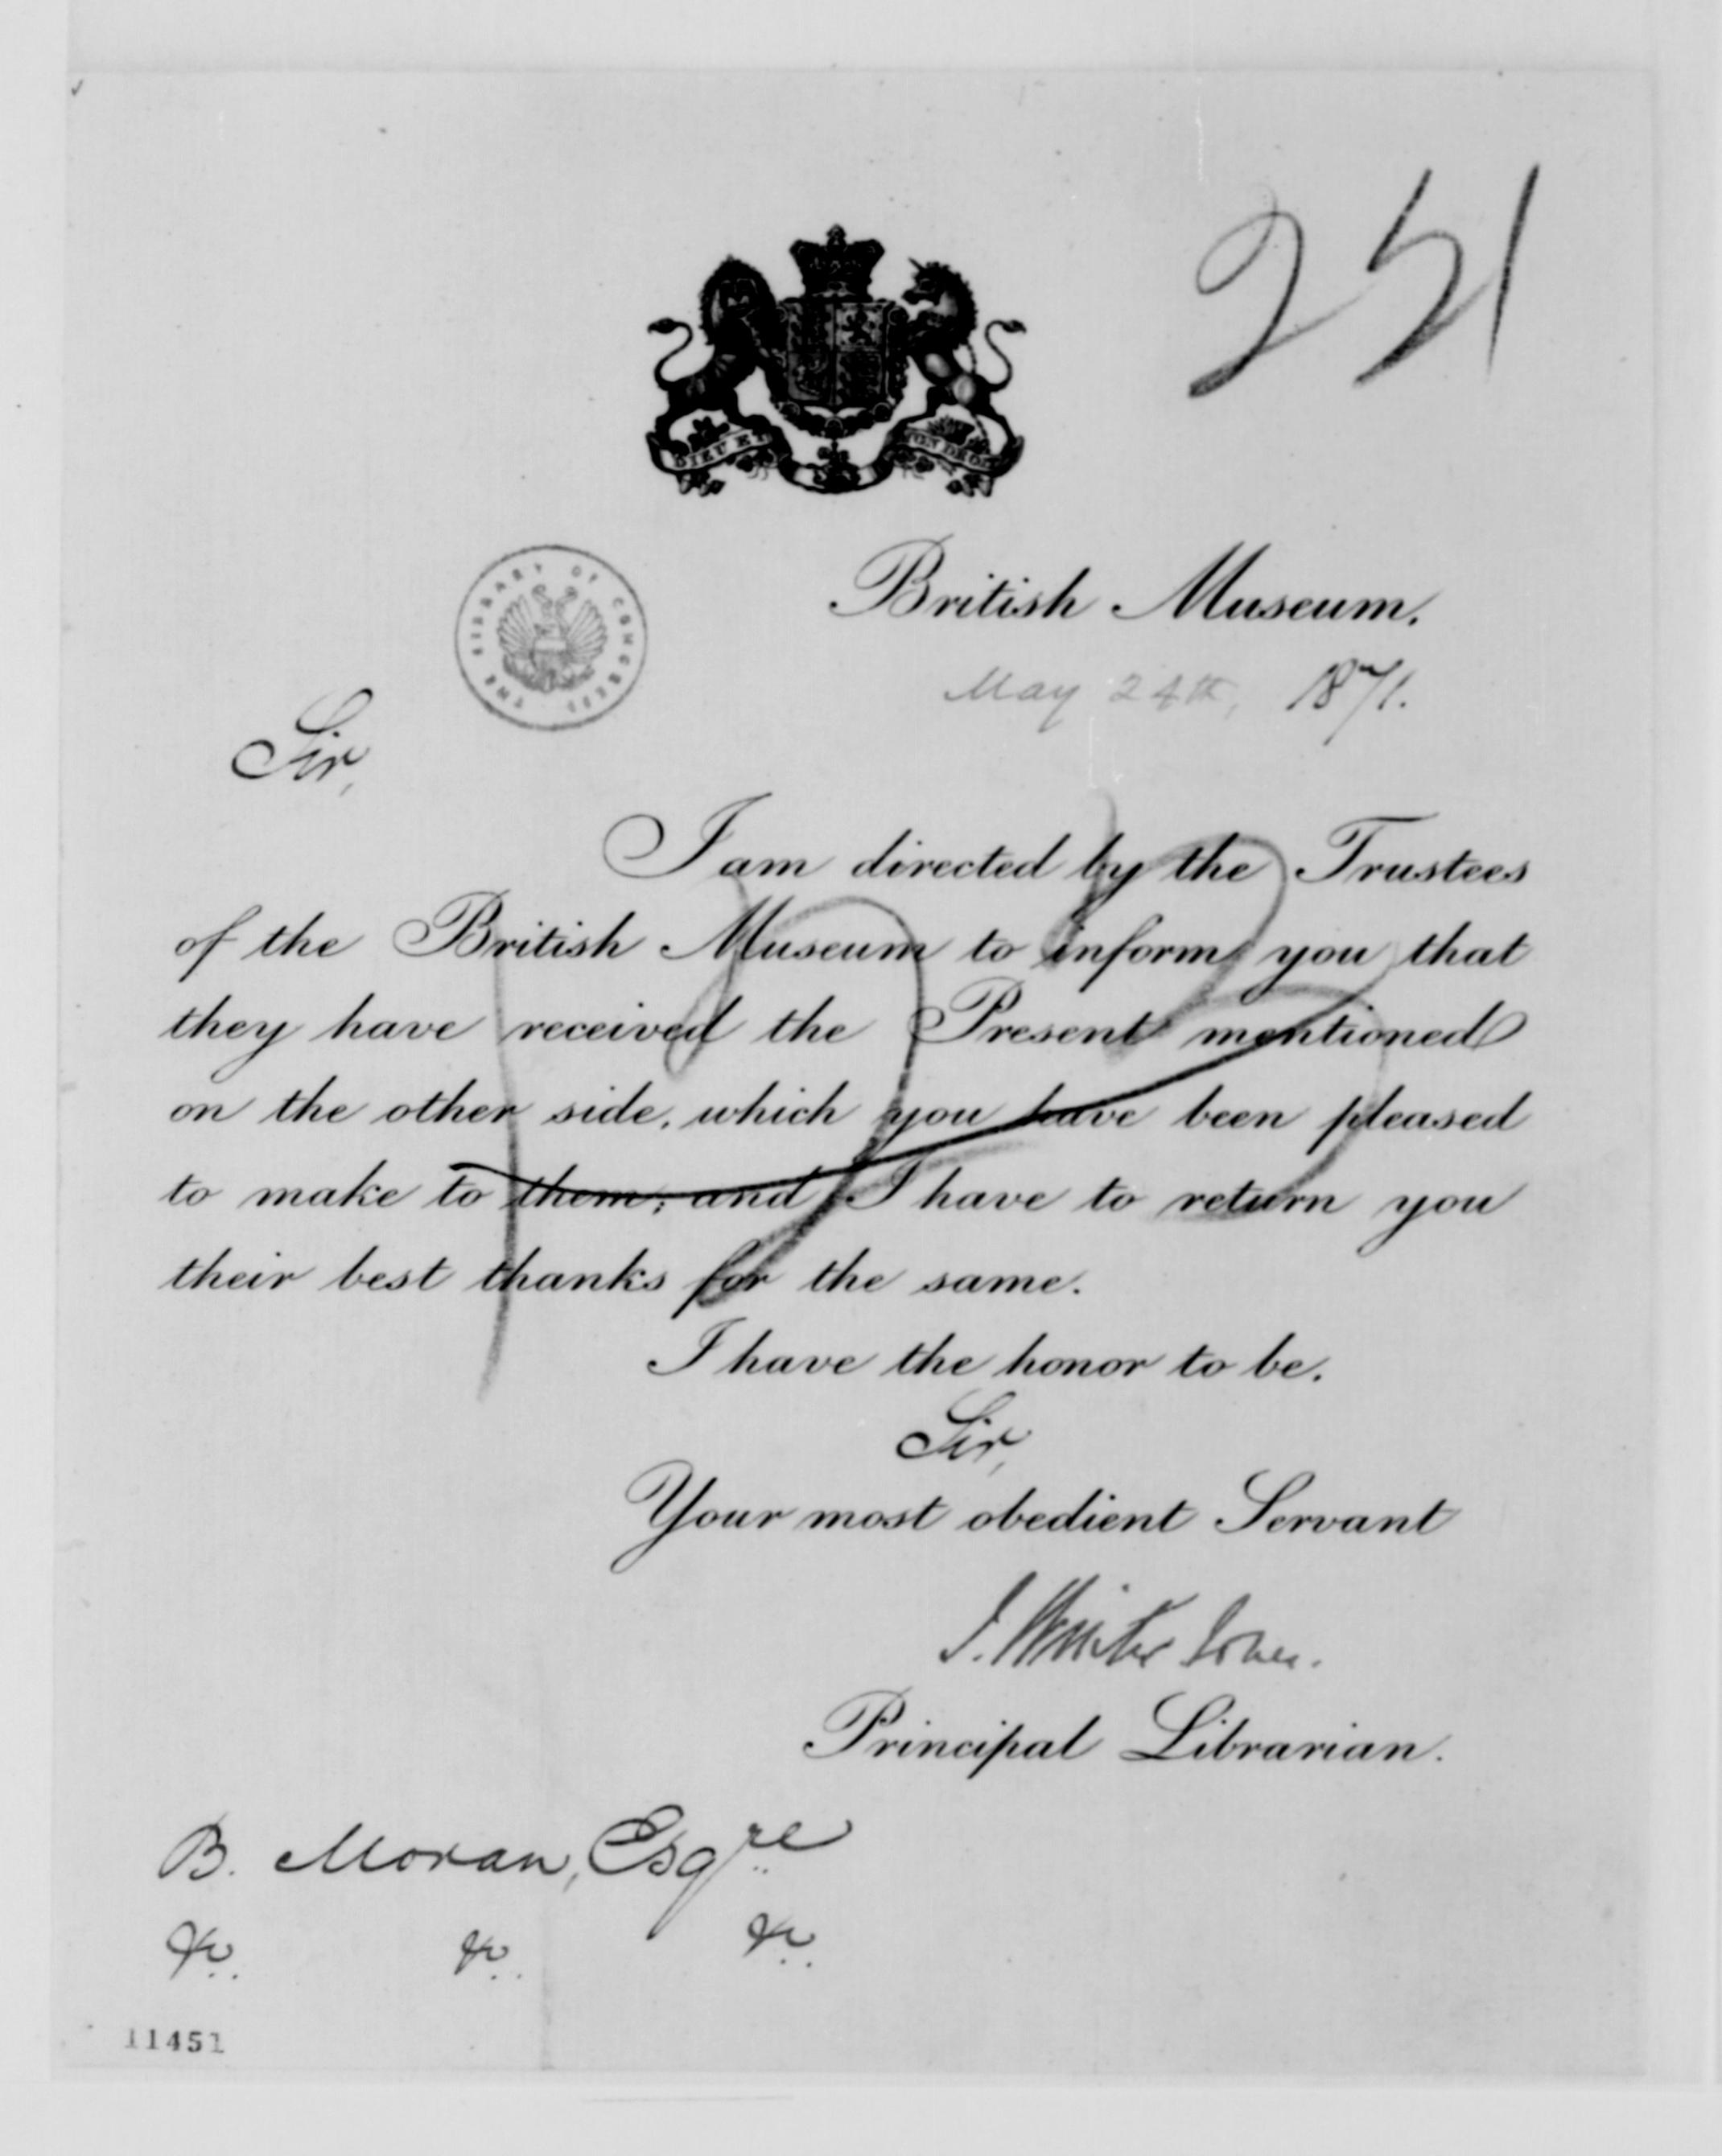 251
DIEU ET MON DROIT
British Museum.
THE LIBRARY OF CONGRESS
May 24th, 1871.
Sir,
I am directed by the Trustees
of the British Museum to inform you that
they have received the Present mentioned
on the other side, which you have been pleased
to make to them; and I have to return you
their best thanks for the same.
I have the honor to be.
Sir,
Your most obedient Servant
J. Winter Jones.
Principal Librarian.
B. Moran, Esqre
&c. &c. &c.
11451